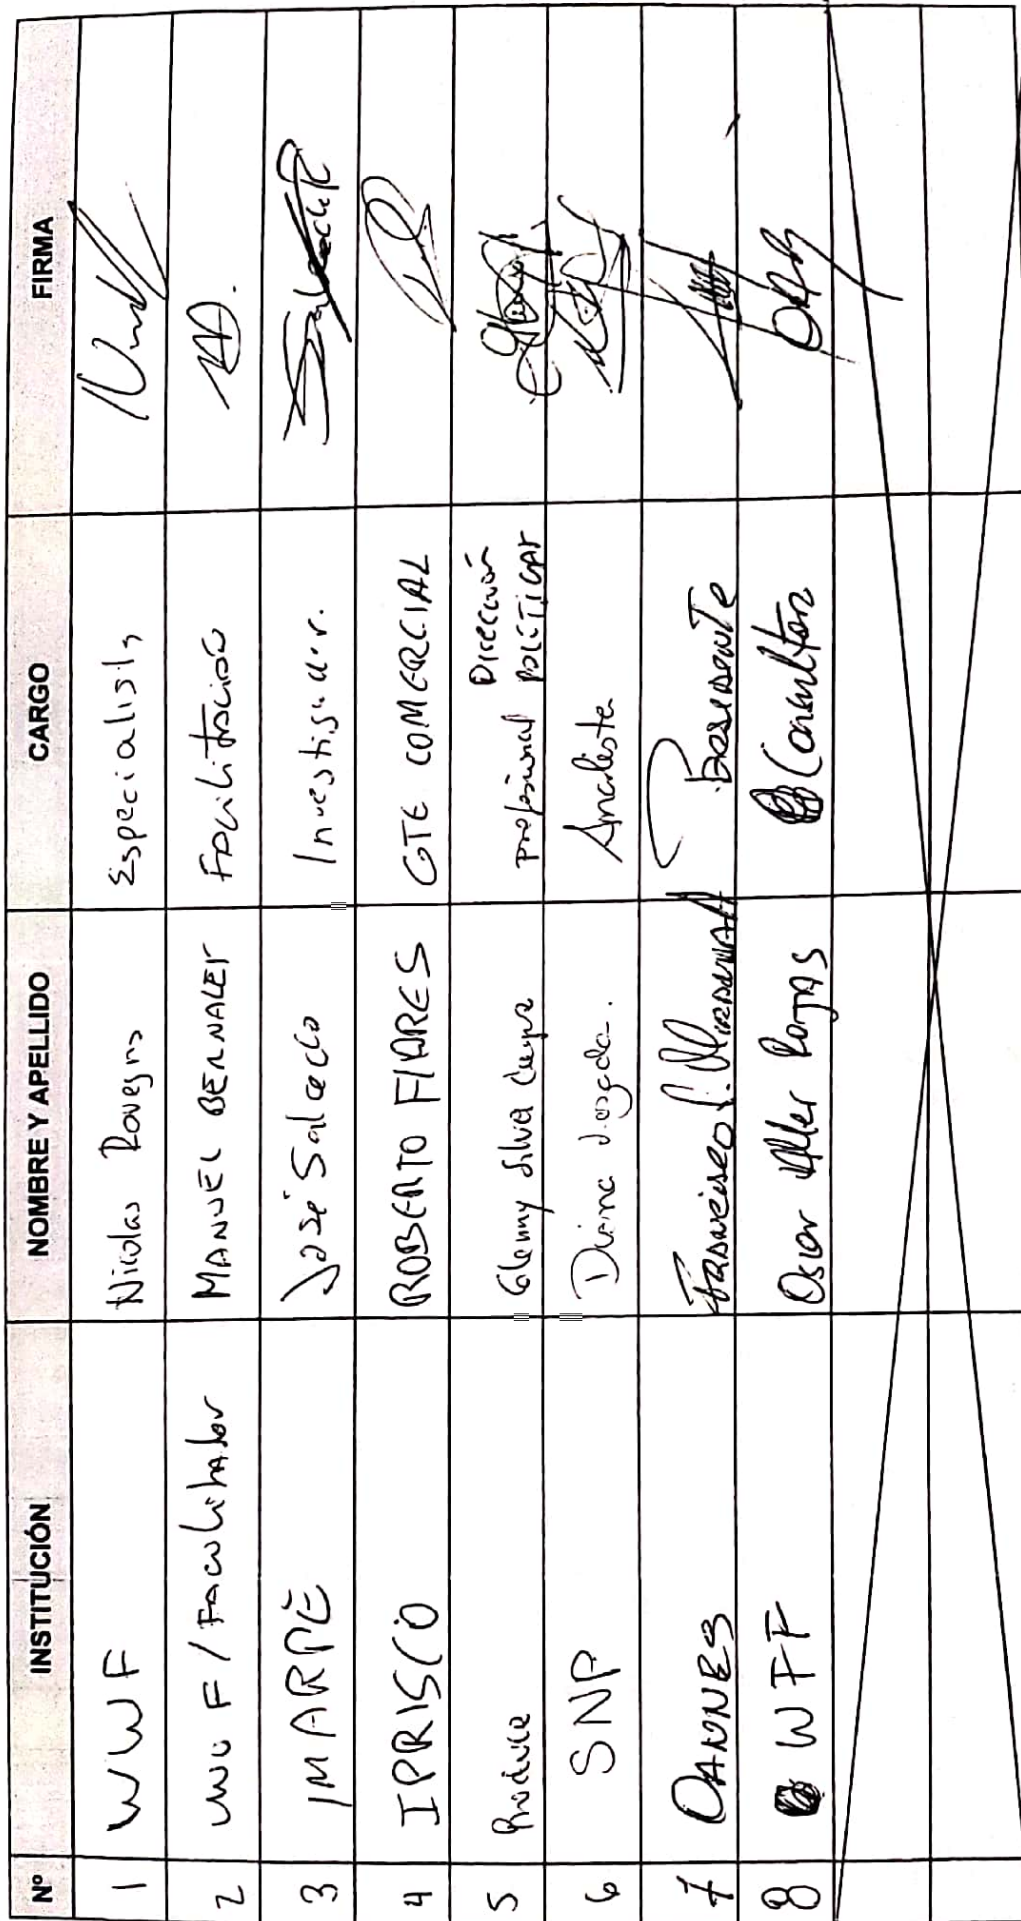 Nº INSTITUCIÓN NOMBRE Y APELLIDO CARGO FIRMA
1 WWF Nicolas Rovegno Especialista
2 WWF / Facilitador MANUEL BERNALES Facilitación
3 IMARPE José Salcedo Investigador.
4 IPRISCO ROBERTO FLARES GTE COMERCIAL
5 Produce Glenny Silva profesional Dirección POLÍTICAS
6 SNP Diana Analista
7 OANNES Francisco J. Miranda Presidente
8 WFF Oscar Rojas Consultor